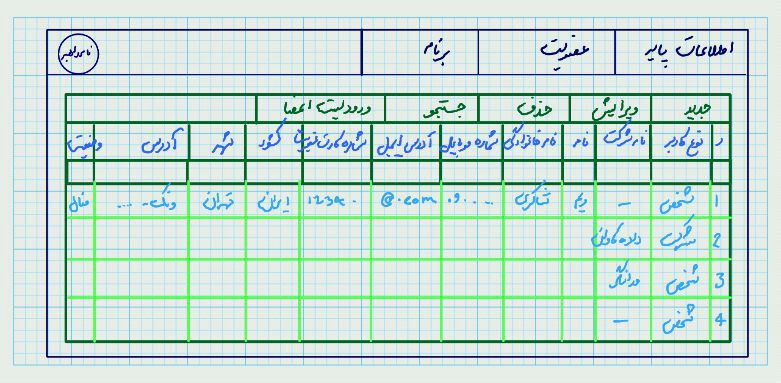 اطلاعات پایه عضویت برنامه نام کاربر
جدید ویرایش حذف جستجو ورود لیست اعضا
ر نوع کاربر نام شرکت نام نام خانوادگی شماره موبایل آدرس ایمیل شماره کارت عضویت کشور شهر آدرس وضعیت
1 شخص – تشکری ۰۹..... @.com ایران تهران ونک .... فعال
2 شرکت
3 شخص
4 شخص –